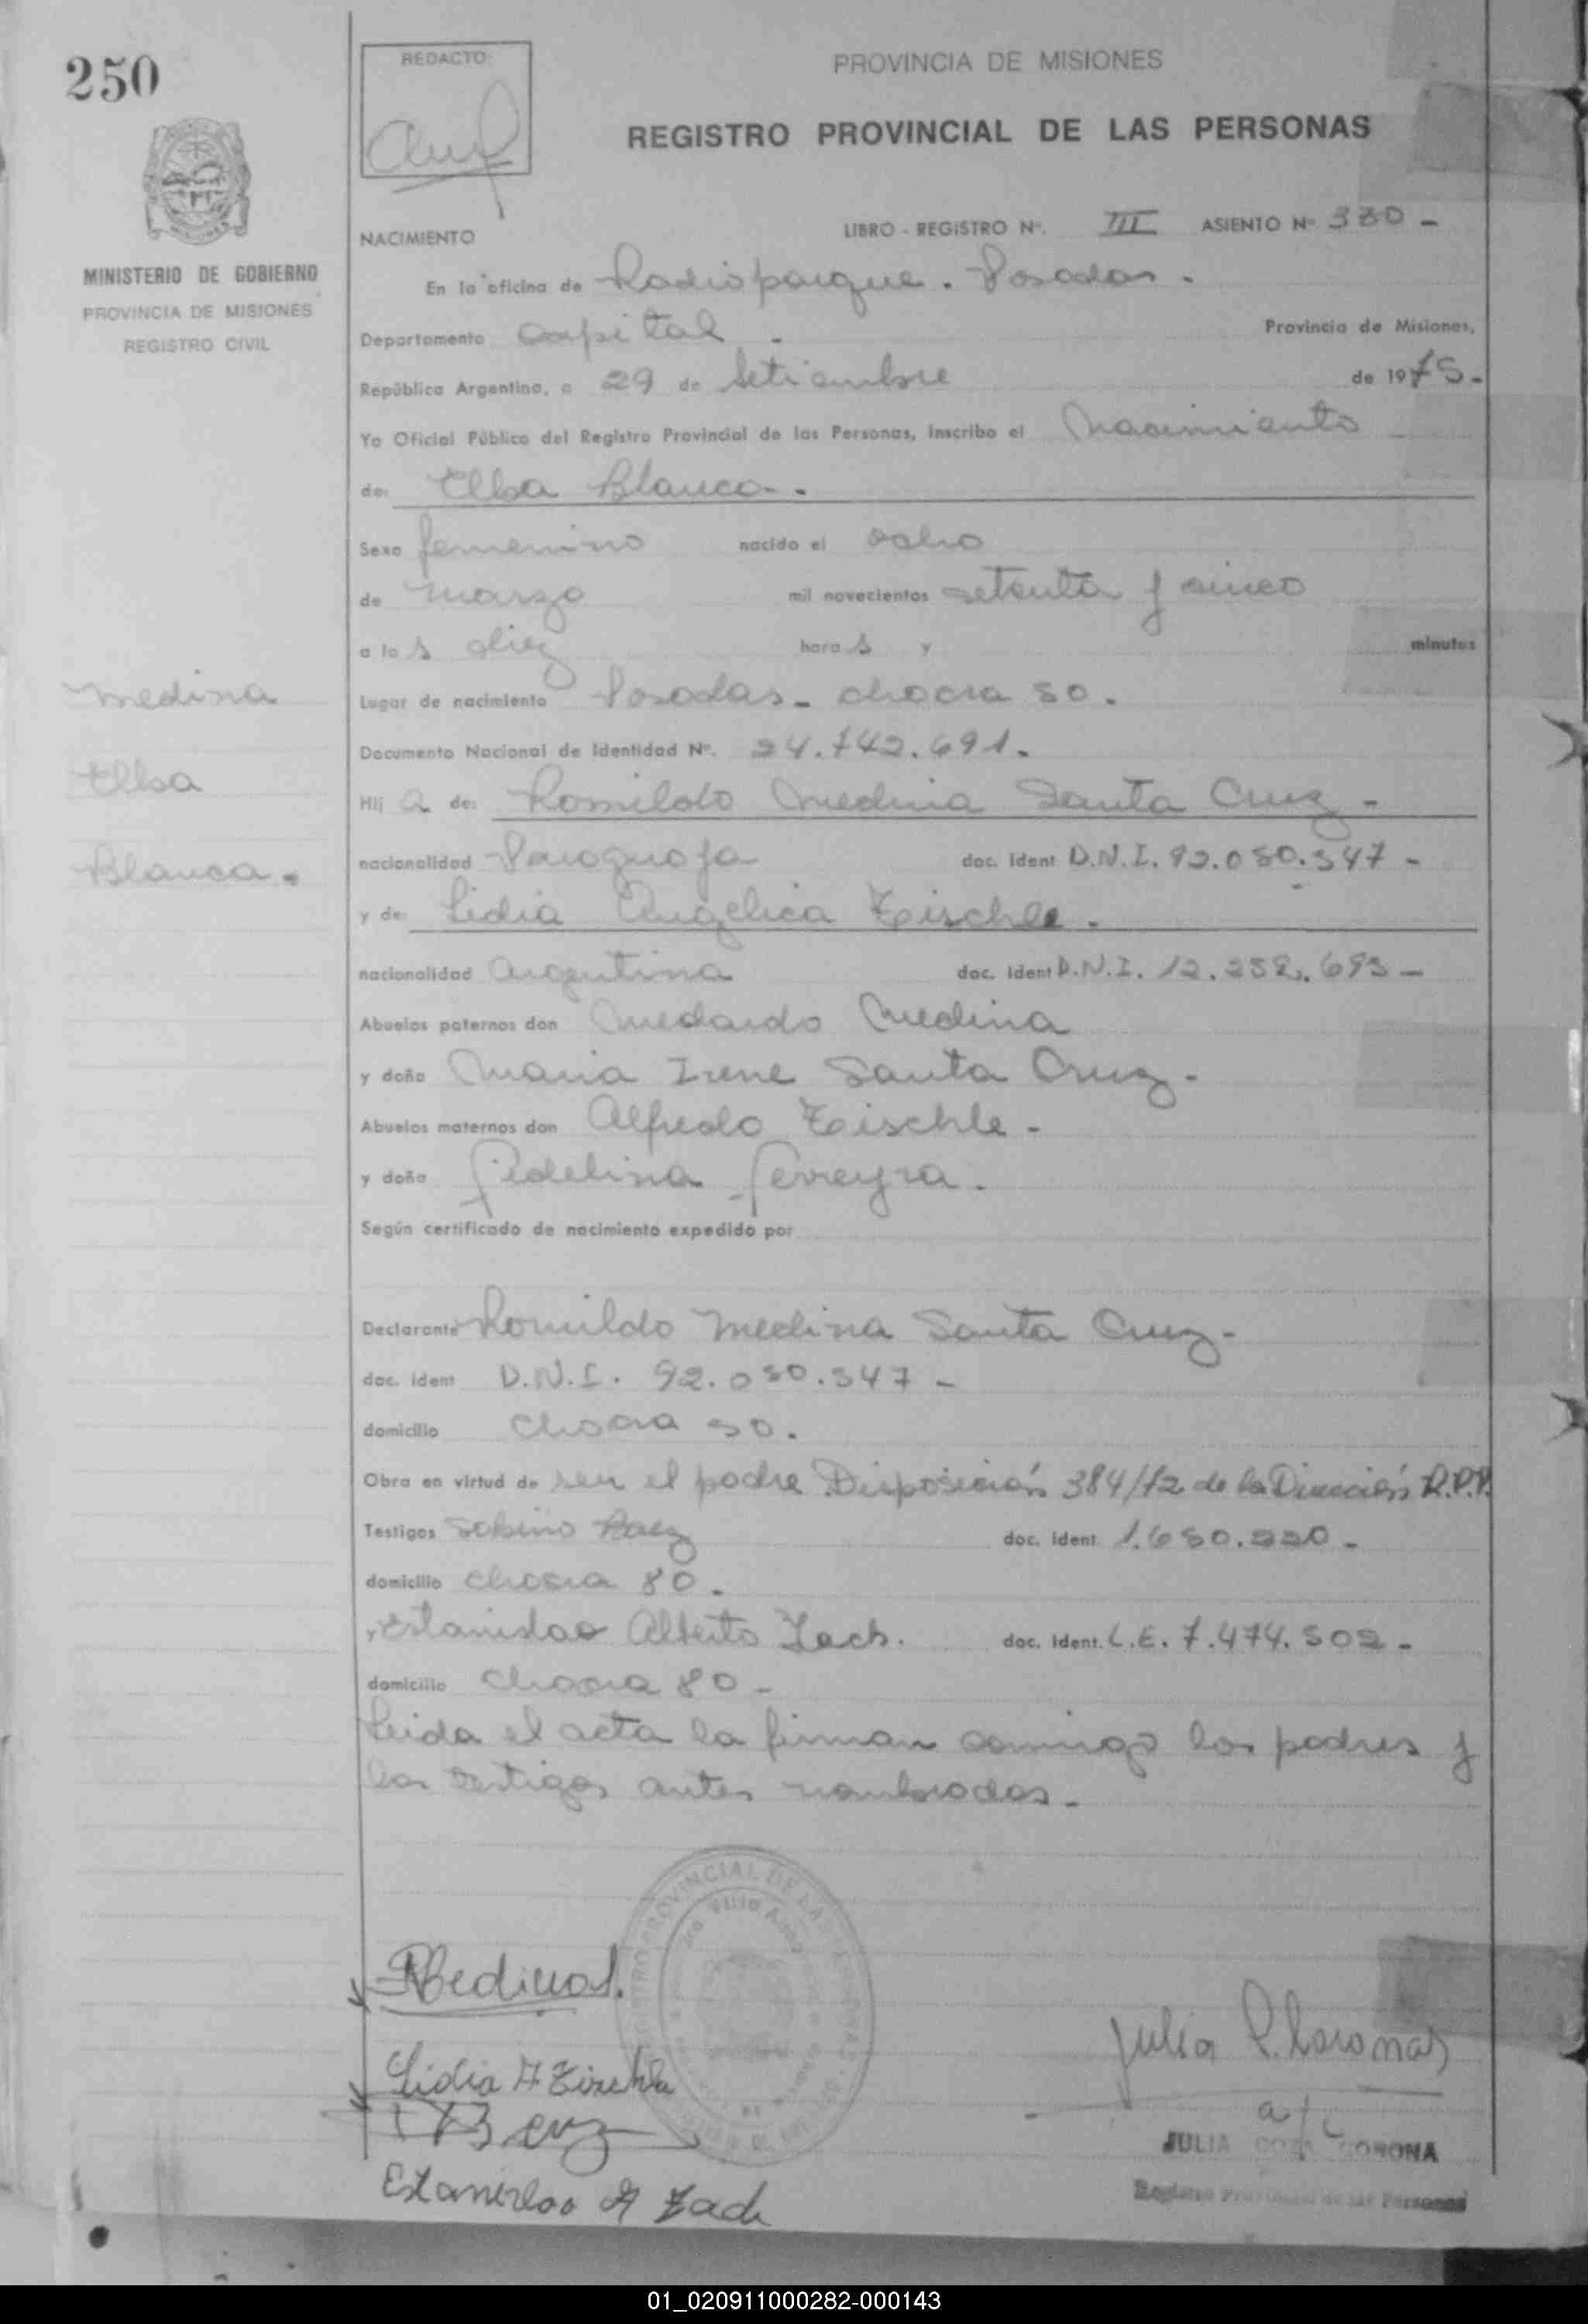 250
REDACTO
PROVINCIA DE MISIONES
REGISTRO PROVINCIAL DE LAS PERSONAS
NACIMIENTO
LIBRO - REGISTRO Nº. III ASIENTO Nº 330 -
MINISTERIO DE GOBIERNO
PROVINCIA DE MISIONES
REGISTRO CIVIL
En la oficina de Radioparque. Posadas.
Departamento Capital. Provincia de Misiones,
República Argentina, a 29 de Setiembre de 1975.-
Yo Oficial Público del Registro Provincial de las Personas, inscribo el Nacimiento
de: Elba Blanca.
Sexo femenino nacido el ocho
de marzo mil novecientos setenta y cinco
a las diez horas y minutos
Lugar de nacimiento Posadas - chacra 80.
Documento Nacional de Identidad Nº. 24.742.691.
Hija de: Romildo Medina Santa Cruz -
nacionalidad Paraguaya doc. ident. D.N.I. 92.080.347 -
y de: Lidia Angelica Zischle.
nacionalidad Argentina doc. ident D.N.I. 12.
Abuelos paternos don Medardo Medina
y doña Maria Irene Santa Cruz -
Abuelos maternos don Alfredo Zischle -
y doña Fidelina Ferreyra.
Según certificado de nacimiento expedido por
Medina
Elba
Blanca.
Declarante Romildo Medina Santa Cruz -
doc. ident D.N.I. 92.080.347 -
domicilio Chacra 80.
Obra en virtud de ser el padre Disposición 384/72 de la Dirección R.P.P.
Testigos Sabino Baez doc. ident. 1.680.220 -
domicilio Chacra 80.
Estanislao Alberto Zach. doc. ident. L.E. 7.474.502 -
domicilio Chacra 80 -
Leida el acta la firman conmigo los padres y
los testigos antes nombrados.
Lidia A Zischle
Estanislao A Zach
JULIA CORONA
Registro Provincial de las Personas
01_020911000282-000143